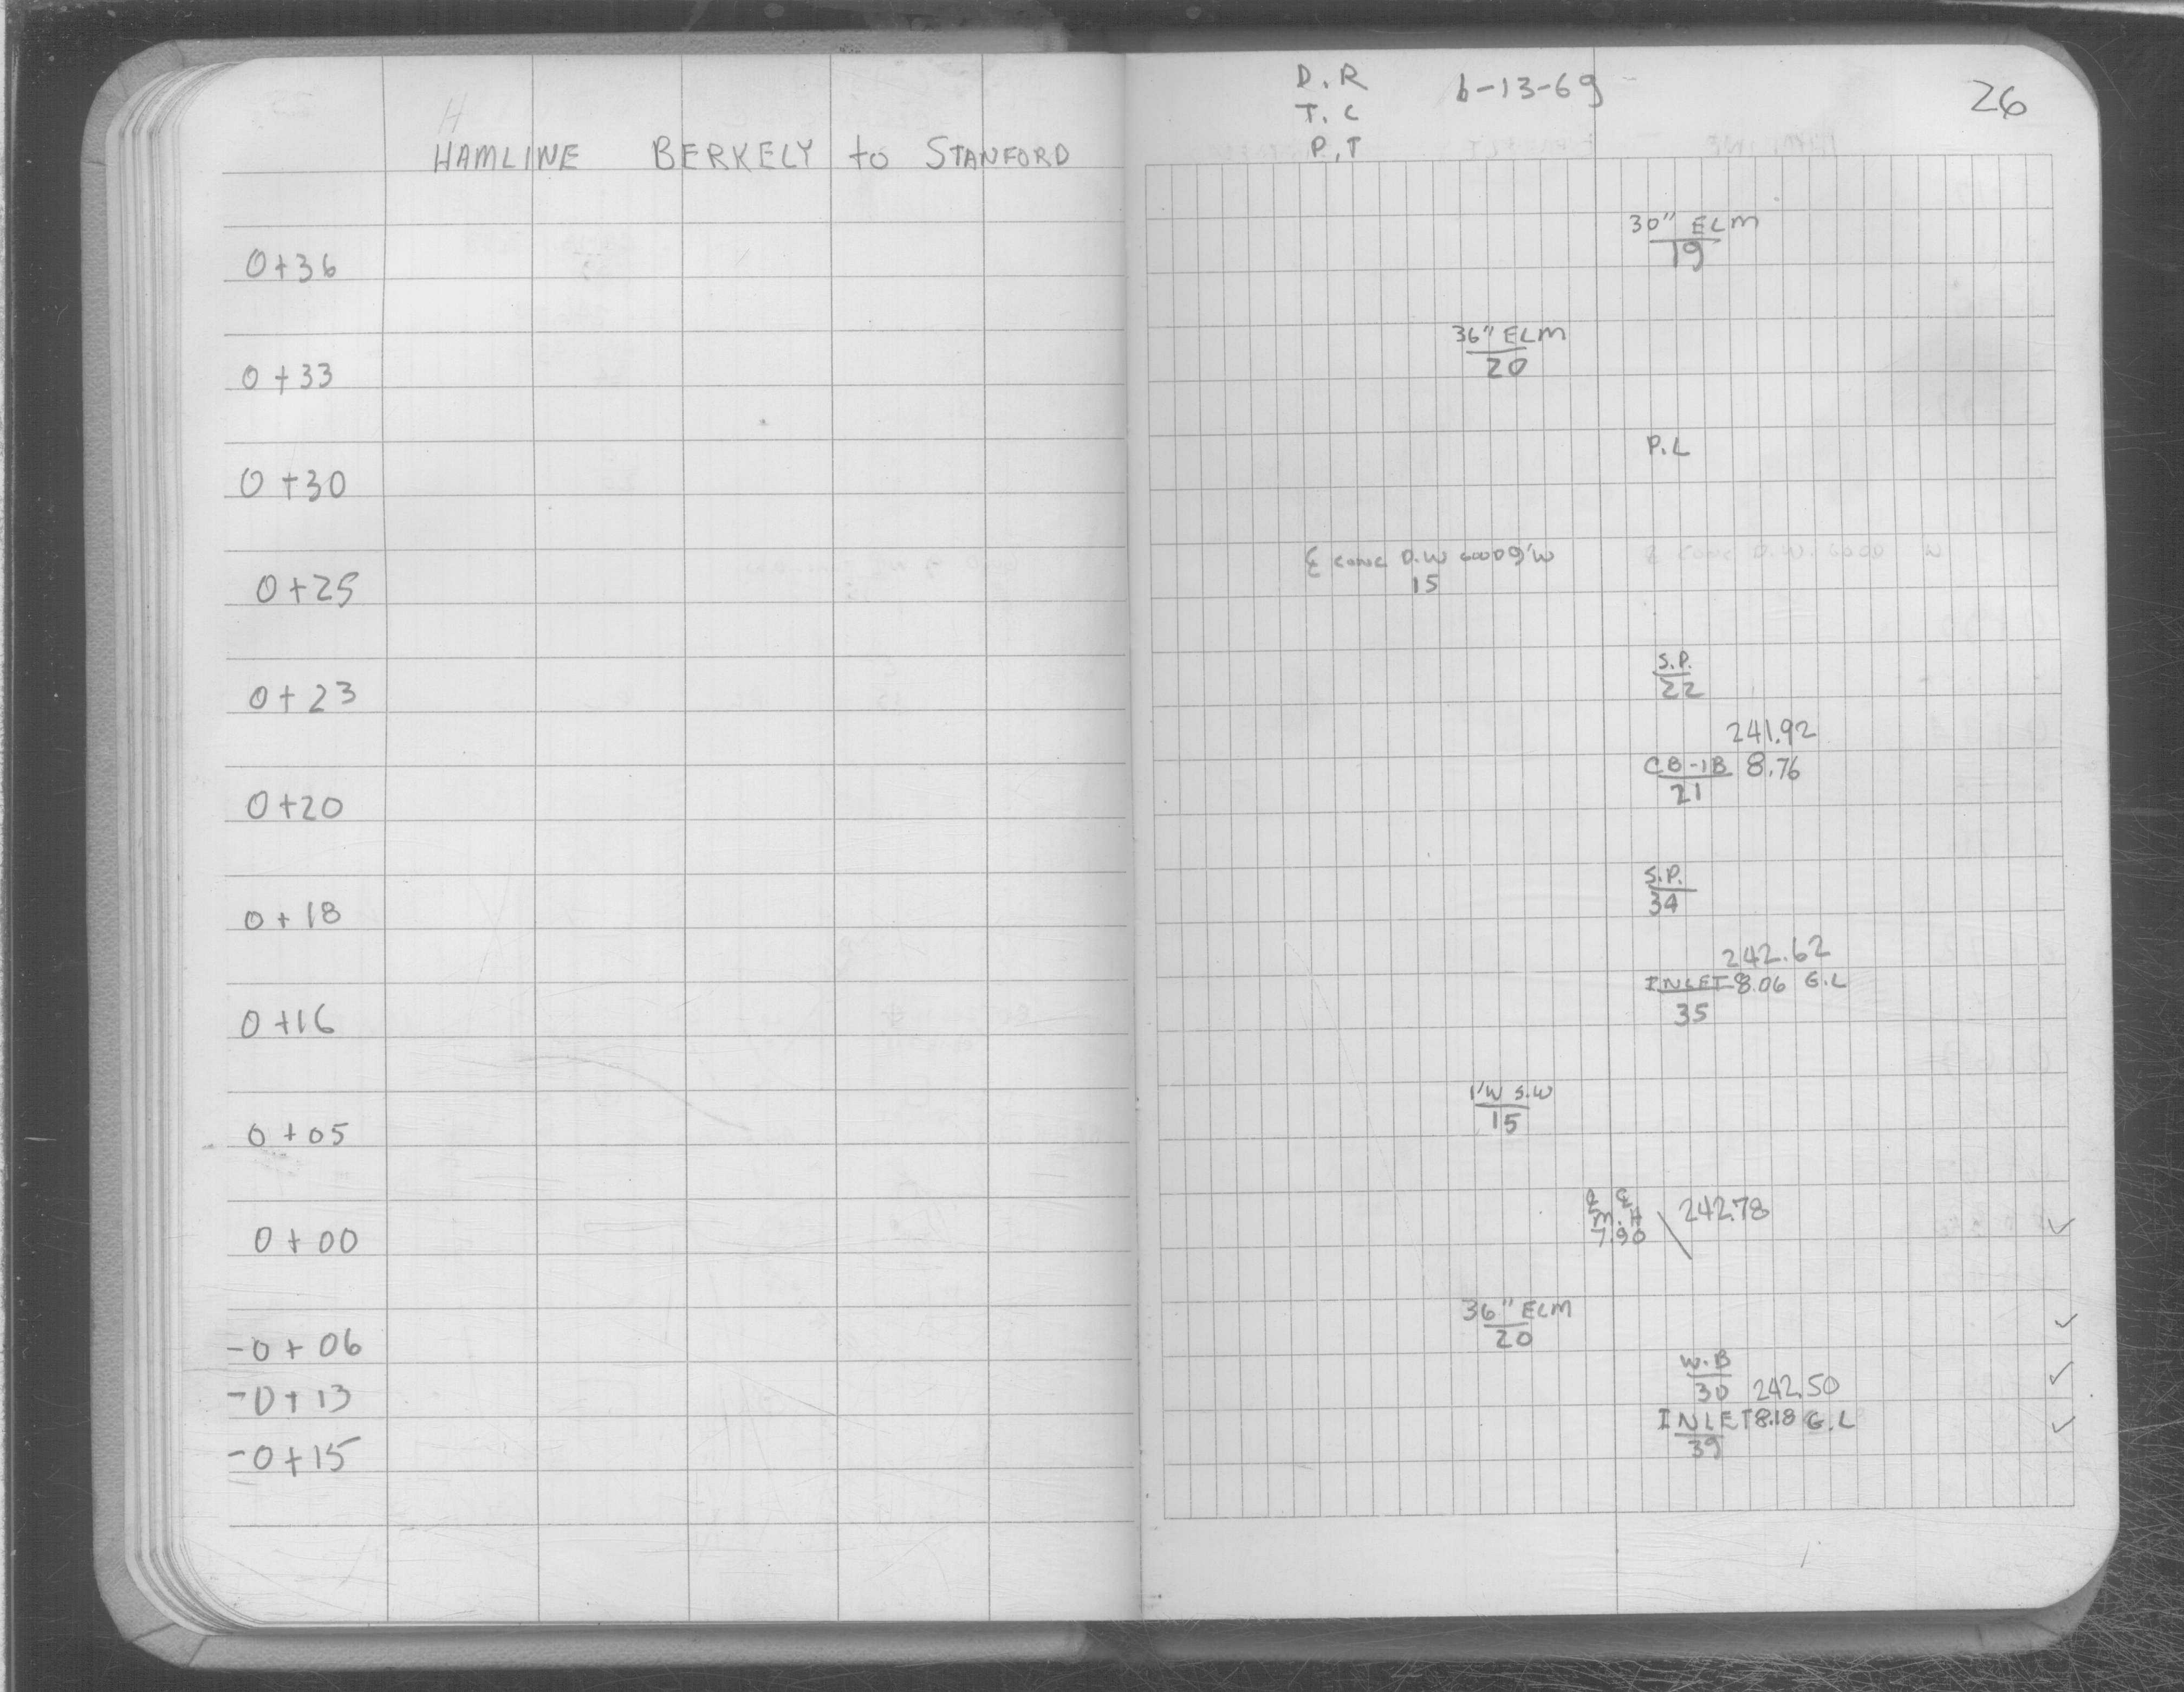 H
HAMLINE BERKELY to STANFORD
0+36
0+33
0+30
0+25
0+23
0+20
0+18
0+16
0+05
0+00
-0+06
-0+13
-0+15
D.R 6-13-69 26
T.C
P.T
30" ELM
19
36" ELM
20
P.L
℄ CONC D.W GOOD 9'W
15
S.P.
22
241.92
CB-1B 8.76
21
S.P.
34
242.62
INLET 8.06 G.L
35
1'W S.W
15
℄ ℄
M.H 242.78 ✓
7.90
36" ELM ✓
20
W.B
30 242.50 ✓
INLET 8.18 G.L ✓
39